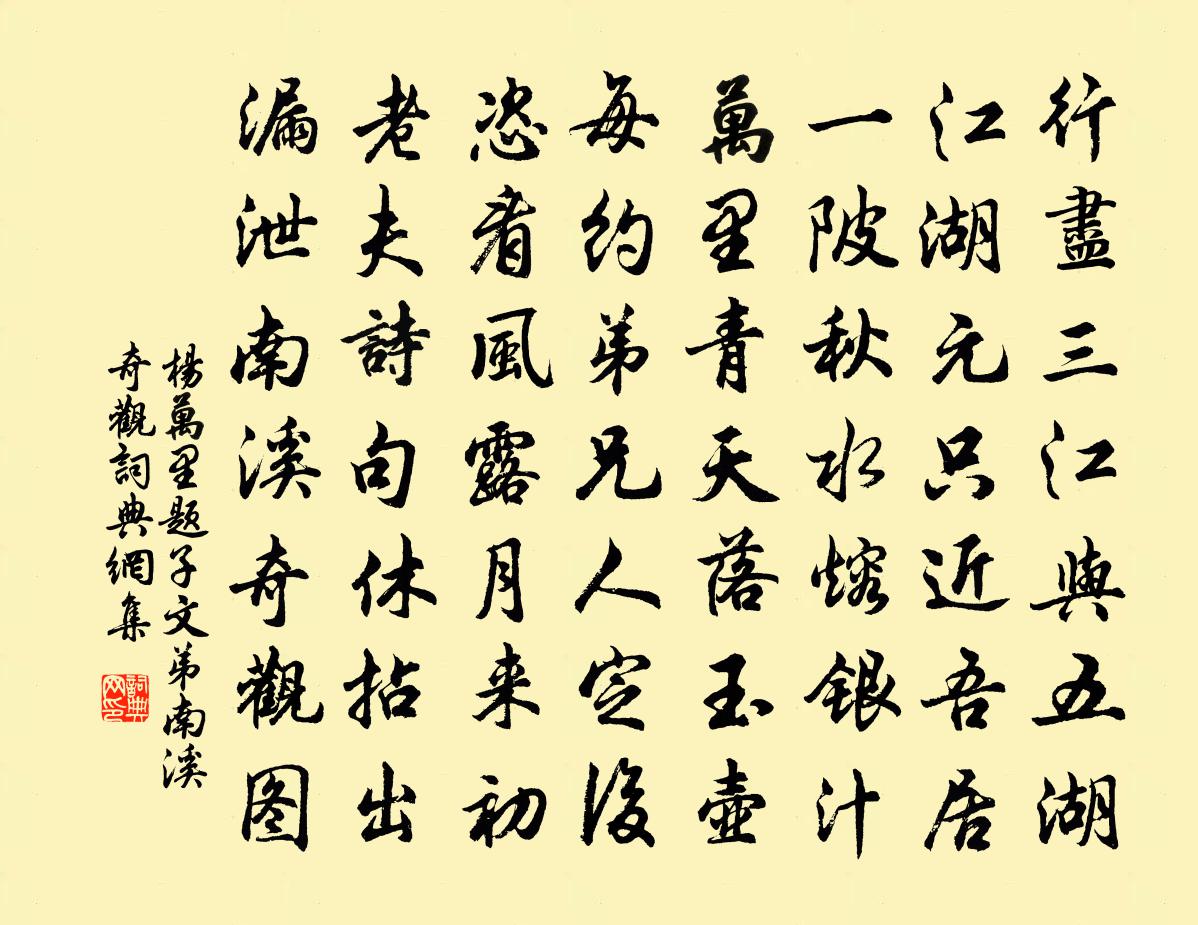 行盡三江與五湖
江湖元只近吾居
一陂秋水熔銀汁
萬里青天落玉壺
每約弟兄人定後
恣看風露月来初
老夫詩句休拈出
漏泄南溪奇觀图
楊萬里題子文弟南溪
奇觀詞典網集
詞典
网印